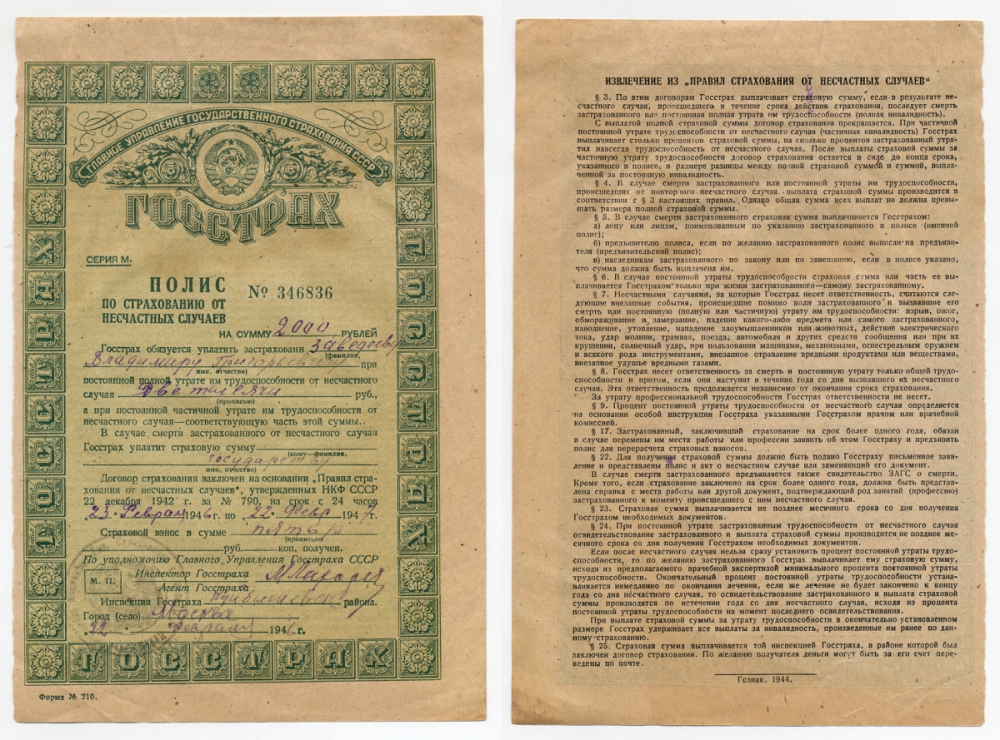 ГЛАВНОЕ УПРАВЛЕНИЕ ГОСУДАРСТВЕННОГО СТРАХОВАНИЯ СССР
ГОССТРАХ
СЕРИЯ М.
ПОЛИС
№ 346836
ПО СТРАХОВАНИЮ ОТ
НЕСЧАСТНЫХ СЛУЧАЕВ
НА СУММУ 2000 РУБЛЕЙ
Госстрах обязуется уплатить застраховани
(фамилия,
Владимиру Григорьевичу при
имя, отчество)
постоянной полной утрате им трудоспособности от несчастного
случая Две тысячи руб.,
(прописью)
а при постоянной частичной утрате им трудоспособности от
несчастного случая—соответствующую часть этой суммы.
В случае смерти застрахованного от несчастного случая
Госстрах уплатит страховую сумму
(кому—фамилия,
государству
имя, отчество)
Договор страхования заключен на основании „Правил стра-
хования от несчастных случаев“, утвержденных НКФ СССР
22 декабря 1942 г. за № 790, на срок с 24 часов
23 Февраля 1946 г. по 22 Февр 194 г.
Страховой взнос в сумме пять
(прописью)
руб. коп. получен.
По уполномочию Главного Управления Госстраха СССР
М. П.
Инспектор Госстраха
Агент Госстраха
Инспекция Госстраха района.
Город (село) Москва
22 февраля 1946 г.
ГОССТРАХ
Форма № 210.
ИЗВЛЕЧЕНИЕ ИЗ „ПРАВИЛ СТРАХОВАНИЯ ОТ НЕСЧАСТНЫХ СЛУЧАЕВ“
§ 3. По этим договорам Госстрах выплачивает страховую сумму, если в результате не-
счастного случая, происшедшего в течение срока действия страхования, последует смерть
застрахованного или постоянная полная утрата им трудоспособности (полная инвалидность).
С выплатой полной страховой суммы договор страхования прекращается. При частичной
постоянной утрате трудоспособности от несчастного случая (частичная инвалидность) Госстрах
выплачивает столько процентов страховой суммы, на сколько процентов застрахованный утра-
тил навсегда трудоспособность от несчастного случая. После выплаты страховой суммы за
частичную утрату трудоспособности договор страхования остается в силе до конца срока,
указанного в полисе, в размере разницы между полной страховой суммой и суммой, выпла-
ченной за постоянную инвалидность.
§ 4. В случае смерти застрахованного или постоянной утраты им трудоспособности,
происшедших от повторного несчастного случая, выплата страховой суммы производится в
соответствии с § 3 настоящих правил. Однако общая сумма всех выплат не должна превы-
шать размера полной страховой суммы.
§ 5. В случае смерти застрахованного страховая сумма выплачивается Госстрахом:
а) лицу или лицам, поименованным по указанию застрахованного в полисе (именной
полис);
б) предъявителю полиса, если по желанию застрахованного полис выписан на предъяви-
теля (предъявительский полис);
в) наследникам застрахованного по закону или по завещанию, если в полисе указано,
что сумма должна быть выплачена им.
§ 6. В случае постоянной утраты трудоспособности страховая сумма или часть ее вы-
плачивается Госстрахом только при жизни застрахованного—самому застрахованному.
§ 7. Несчастными случаями, за которые Госстрах несет ответственность, считаются сле-
дующие внезапные события, происшедшие помимо воли застрахованного и вызвавшие его
смерть или постоянную (полную или частичную) утрату им трудоспособности: взрыв, ожог,
обмораживание и замерзание, падение какого-либо предмета или самого застрахованного,
наводнение, утопление, нападение злоумышленников или животных, действие электрического
тока, удар молнии, трамвая, поезда, автомобиля и других средств сообщения или при их
крушении, солнечный удар, при пользовании машинами, механизмами, огнестрельным оружием
и всякого рода инструментами, внезапное отравление вредными продуктами или веществами,
внезапное удушье вредными газами.
§ 8. Госстрах несет ответственность за смерть и постоянную утрату только общей трудо-
способности и притом, если они наступят в течение года со дня вызвавшего их несчастного
случая. Эта ответственность продолжается независимо от окончания срока страхования.
За утрату профессиональной трудоспособности Госстрах ответственности не несет.
§ 9. Процент постоянной утраты трудоспособности от несчастного случая определяется
на основании особой инструкции Госстраха указанными Госстрахом врачом или врачебной
комиссией.
§ 17. Застрахованный, заключивший страхование на срок более одного года, обязан
в случае перемены им места работы или профессии заявить об этом Госстраху и предъявить
полис для перерасчета страховых взносов.
§ 22. Для получения страховой суммы должно быть подано Госстраху письменное заяв-
ление и представлены полис и акт о несчастном случае или заменяющий его документ.
В случае смерти застрахованного предъявляется также свидетельство ЗАГС о смерти.
Кроме того, если страхование заключено на срок более одного года, должна быть представ-
лена справка с места работы или другой документ, подтверждающий род занятий (профессию)
застрахованного к моменту происшедшего с ним несчастного случая.
§ 23. Страховая сумма выплачивается не позднее месячного срока со дня получения
Госстрахом необходимых документов.
§ 24. При постоянной утрате застрахованным трудоспособности от несчастного случая
освидетельствование застрахованного и выплата страховой суммы производится не позднее меся-
чного срока со дня получения Госстрахом необходимых документов.
Если после несчастного случая нельзя сразу установить процент постоянной утраты трудо-
способности, то по желанию застрахованного Госстрах выплачивает ему страховую сумму,
исходя из предполагаемого врачебной экспертизой минимального процента постоянной утраты
трудоспособности. Окончательный процент постоянной утраты трудоспособности устана-
вливается немедленно по окончании лечения, если же лечение не будет закончено к концу
года со дня несчастного случая, то освидетельствование застрахованного и выплата страховой
суммы производятся по истечении года со дня несчастного случая, исходя из процента
постоянной утраты трудоспособности на момент последнего освидетельствования.
При выплате страховой суммы за утрату трудоспособности в окончательно установленном
размере Госстрах удерживает все выплаты за инвалидность, произведенные им ранее по дан-
ному страхованию.
§ 25. Страховая сумма выплачивается той инспекцией Госстраха, в районе которой был
заключен договор страхования. По желанию получателя деньги могут быть за его счет пере-
ведены по почте.
Гознак. 1944.